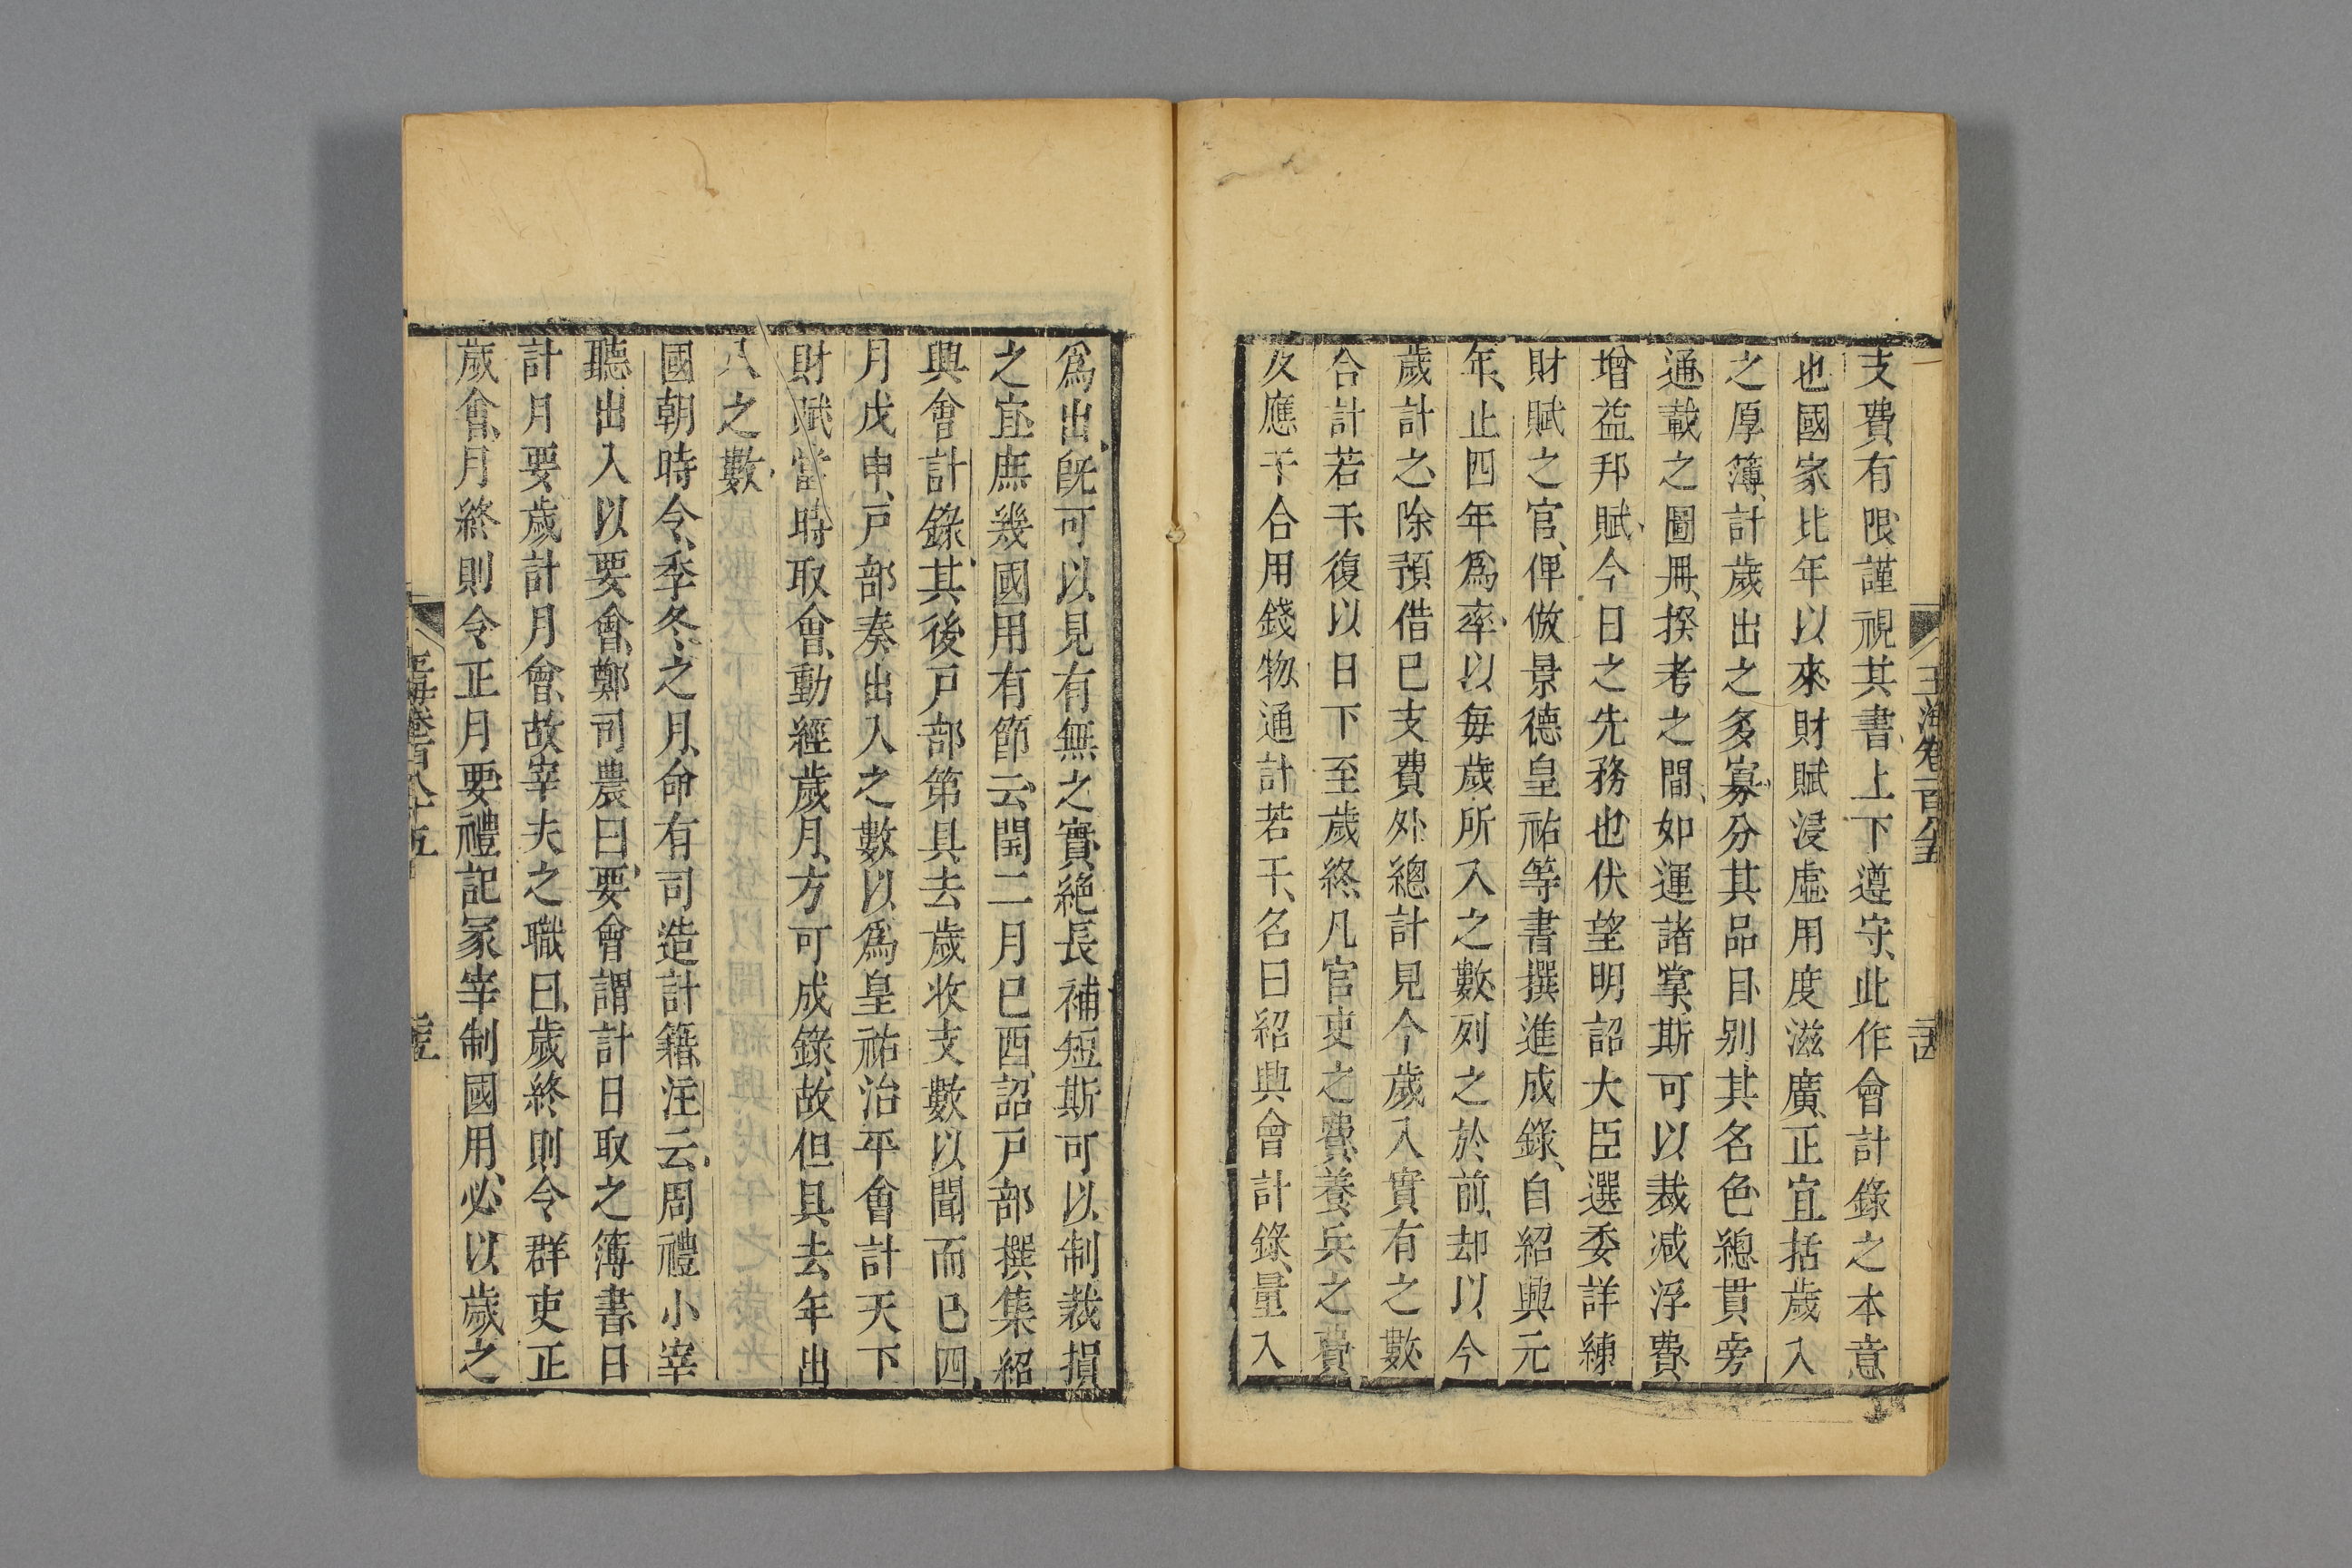 支費有限謹視其書上下遵守此作會計錄之本意
也國家比年以來財賦浸虛用度滋廣正宜括歲入
之厚簿計歲出之多寡分其品目别其名色總貫旁
通載之圖冊揆考之間如運諸掌斯可以裁减浮費
增益邦賦今日之先務也伏望明詔大臣選委詳練
財賦之官俾倣景德皇祐等書撰進成錄自紹興元
年止四年爲率以每歲所入之數列之於前却以今
歲計之除預借已支費外總計見今歲入實有之數
合計若干復以日下至歲終凡官吏之費養兵之費
及應干合用錢物通計若干名曰紹興會計錄量入
爲出旣可以見有無之實絶長補短斯可以制裁損
之宜庶幾國用有節云閏二月已酉詔戸部撰集紹
興會計錄其後戸部第具去歲收支數以聞而已四
月戊申戸部奏出入之數以爲皇祐治平會計天下
財賦當時取會動經歲月方可成錄故但具去年出
入之數
國朝時令季冬之月命有司造計籍注云周禮小宰
聽出入以要會鄭司農曰要會謂計日取之簿書日
計月要歲計月會故宰夫之職曰歲終則令群吏正
歲會月終則令正月要禮記冢宰制國用必以歲之
玉海卷百八十五